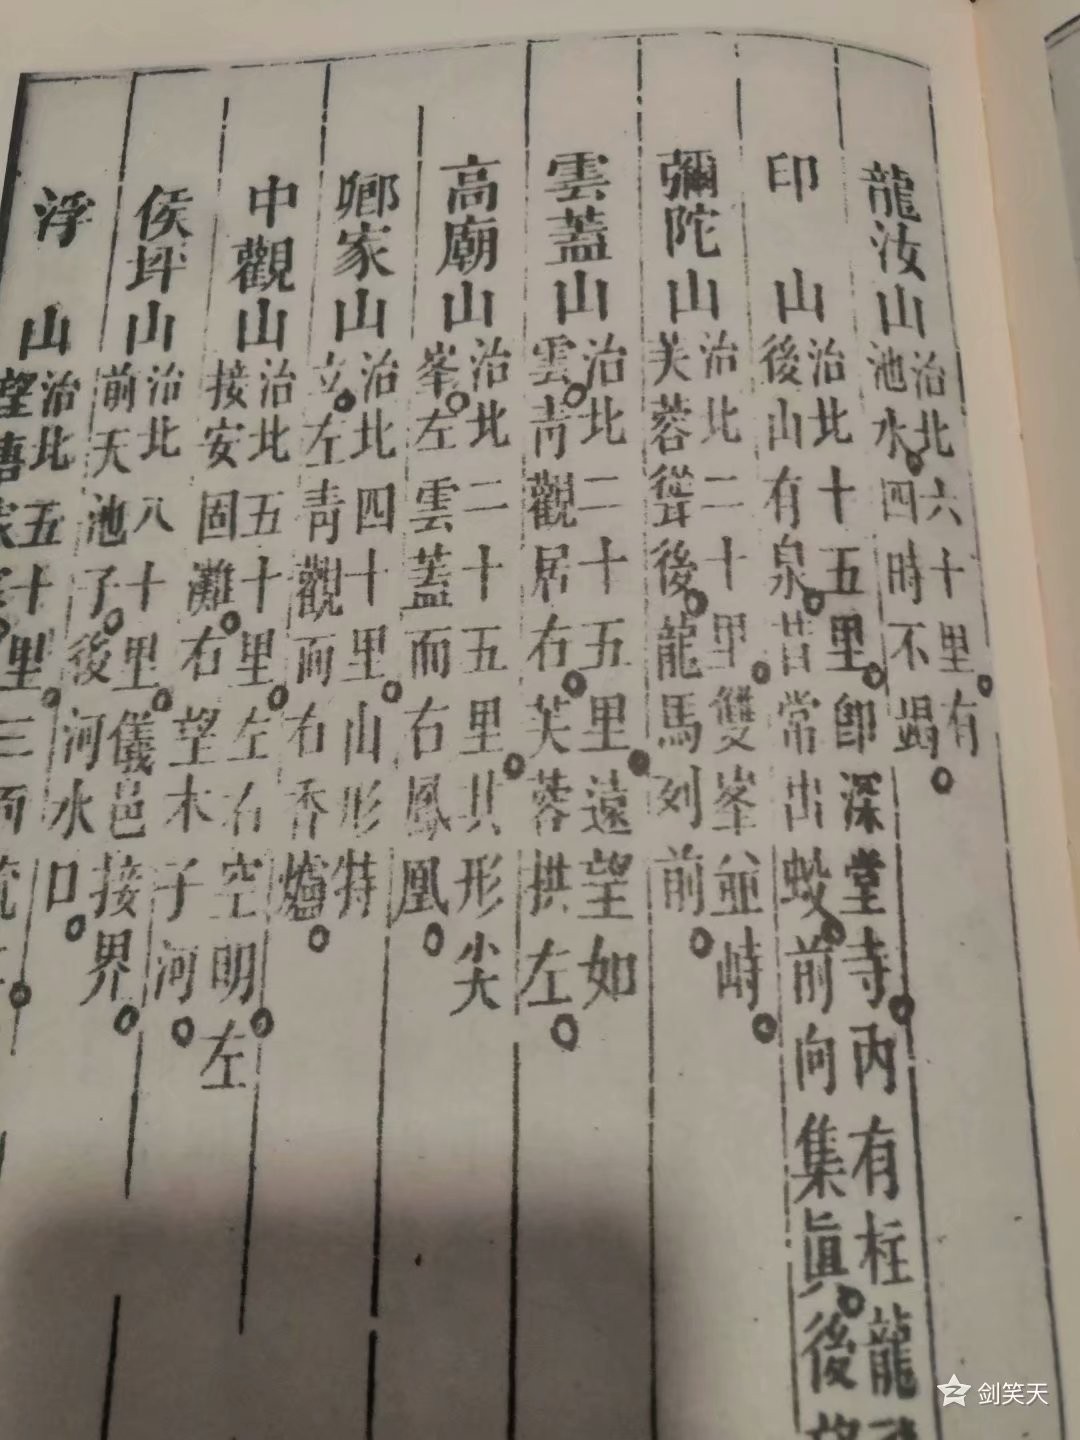 龍汝山治北六十里有
池水四時不竭
印山治北十五里即深堂寺内有柱龍
後山有泉昔常出蛟前向集眞後
彌陀山治北二十里雙峯並峙
芙蓉聳後龍馬列前
雲蓋山治北二十五里遠望如
雲靑觀居右芙蓉拱左
高廟山治北二十五里其形尖
峯左雲蓋而右鳳凰
鄕家山治北四十里山形特
立左靑觀而右香爐
中觀山治北五十里左右空明左
接安固灘右望木子河
侯坪山治北八十里儀邑接界
前天池子後河水口
浮山治北五十里三面
望
剑笑天